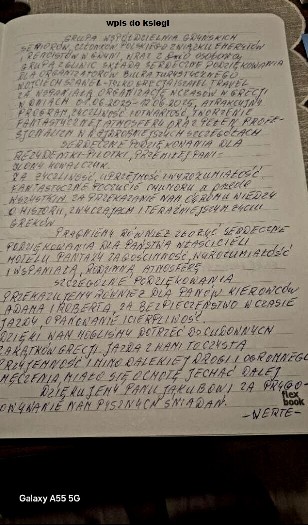 wpis do księgi
GRUPA WSPÓŁDZIELNIA GRYŃSKICH
SENIORÓW, CZŁONKÓW POLSKIEGO ZWIĄZKU EMERYTÓW
I RENCISTÓW W WRAZ Z
GRUPA 20-LIC SKŁADA SERDECZNE PODZIĘKOWANIA
DLA ORGANIZATORÓW BIURA TURYSTYCZNEGO
WOJCIECH TRAVEL
ZA WSPANIAŁĄ ORGANIZACJĘ WCZASÓW W GRECJI
W DNIACH 01.06.2025-12.06.2025, ATRAKCYJNY
PROGRAM, ŻYCZLIWOŚĆ I OTWARTOŚĆ, TWORZENIE
FANTASTYCZNEJ ATMOSFERY ORAZ PEŁEN PROFE-
SJONALIZM W NAJDROBNIEJSZYCH SZCZEGÓŁACH
SERDECZNE PODZIĘKOWANIA DLA
REZYDENTKI-PILOTKI, PRZEMIŁEJ PANI-
KOWALCZYK.
ZA ŻYCZLIWOŚĆ, UPRZEJMOŚĆ I WYROZUMIAŁOŚĆ,
FANTASTYCZNE POCZUCIE HUMORU, a przede
WSZYSTKIM ZA PRZEKAZANIE NAM OGROMU WIEDZY
O HISTORII, ZWYCZAJACH I TERAŹNIEJSZYM ŻYCIU
GREKÓW.
PRAGNIEMY RÓWNIEŻ ZŁOŻYĆ SERDECZNE
PODZIĘKOWANIA DLA PAŃSTWA WŁAŚCICIELI
HOTELU ZA GOŚCINNOŚĆ, WYROZUMIAŁOŚĆ
I WSPANIAŁĄ, RODZINNĄ ATMOSFERĘ
SZCZEGÓLNE PODZIĘKOWANIA
PRZEKAZUJEMY RÓWNIEŻ DLA PANÓW KIEROWCÓW
ADAMA I ROBERTA, ZA BEZPIECZEŃSTWO W CZASIE
JAZDY, OPANOWANIE I CIERPLIWOŚĆ.
DZIĘKI WAM MOGLIŚMY DOTRZEĆ DO CUDOWNYCH
ZAKĄTKÓW GRECJI. JAZDA Z WAMI TO CZYSTA
PRZYJEMNOŚĆ I MIMO DALEKIEJ DROGI I OGROMNEGO
ZMĘCZENIA MIAŁO SIĘ OCHOTĘ JECHAĆ DALEJ
DZIĘKUJEMY PANU JAKUBOWI ZA PRZYGO-
TOWYWANIE NAM PYSZNYCH ŚNIADAŃ.
-VERTE-
flex
book
Galaxy A55 5G